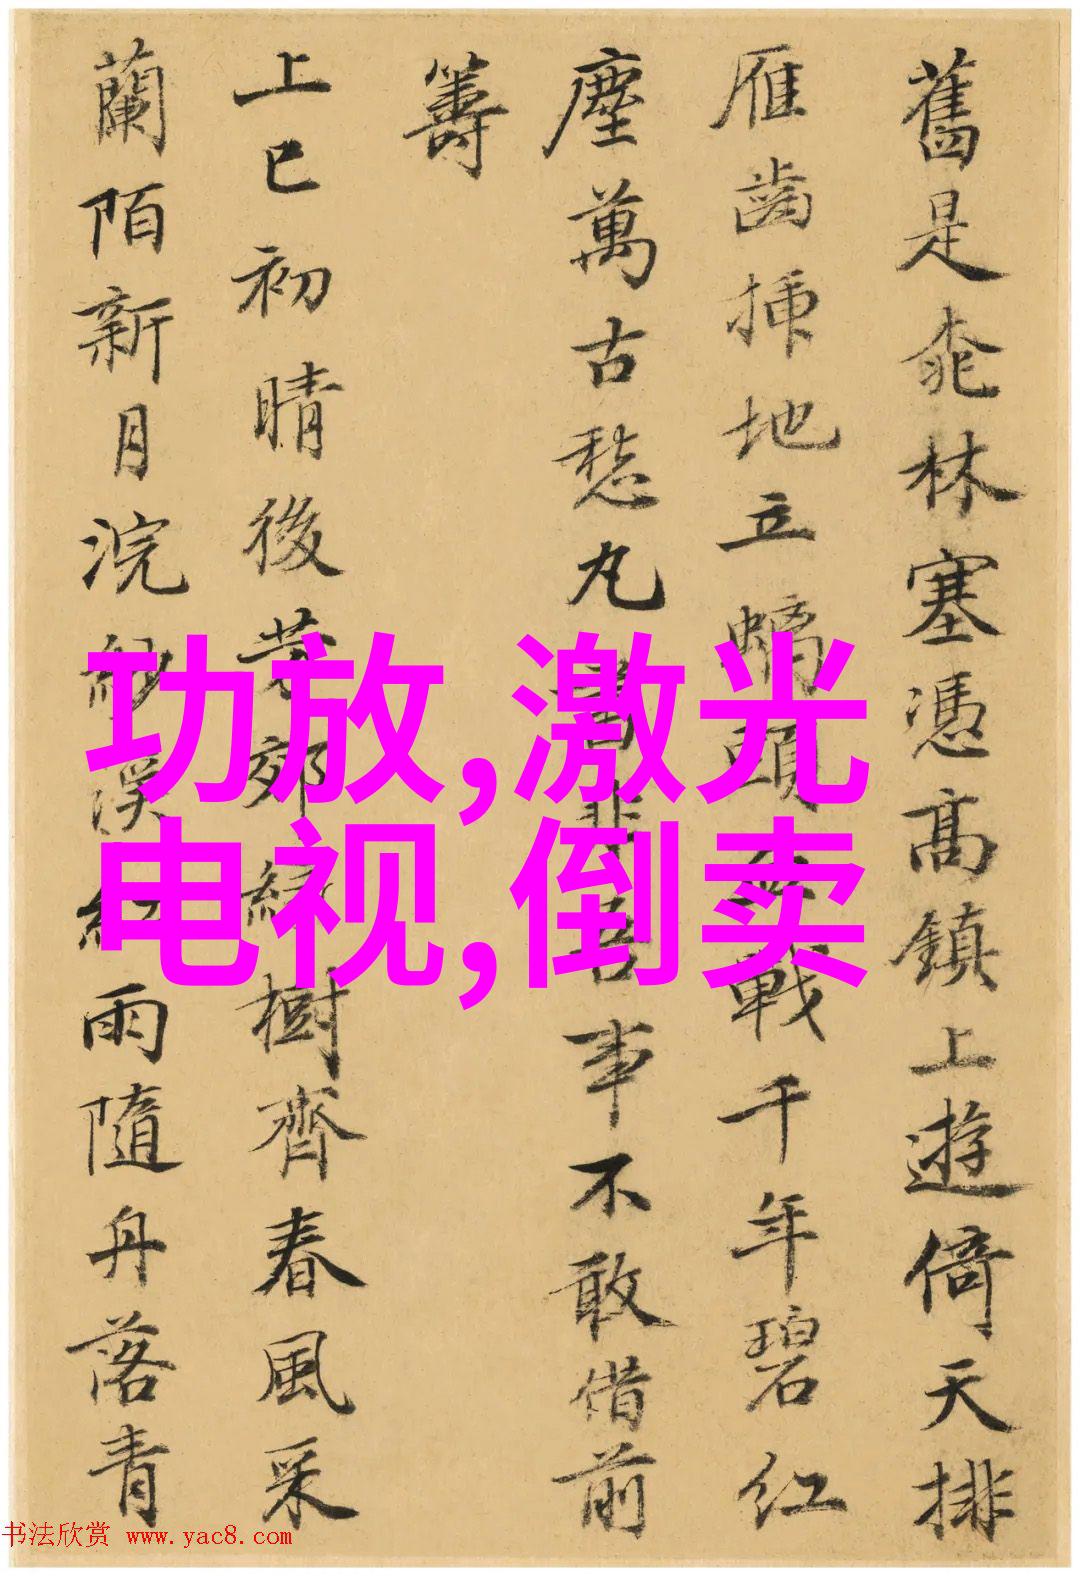 舊是桃林塞憑高鎮上遊倚天排
雁齒插地立螭頭血戰千年碧紅
塵萬古愁丸書非吾事不敢借前
籌
上巳初晴後芳郊綠樹齊春風采
蘭陌新月浣紗溪紅雨隨舟落青
功放,激光
电视,倒卖
书法欣赏 www.yac8.com